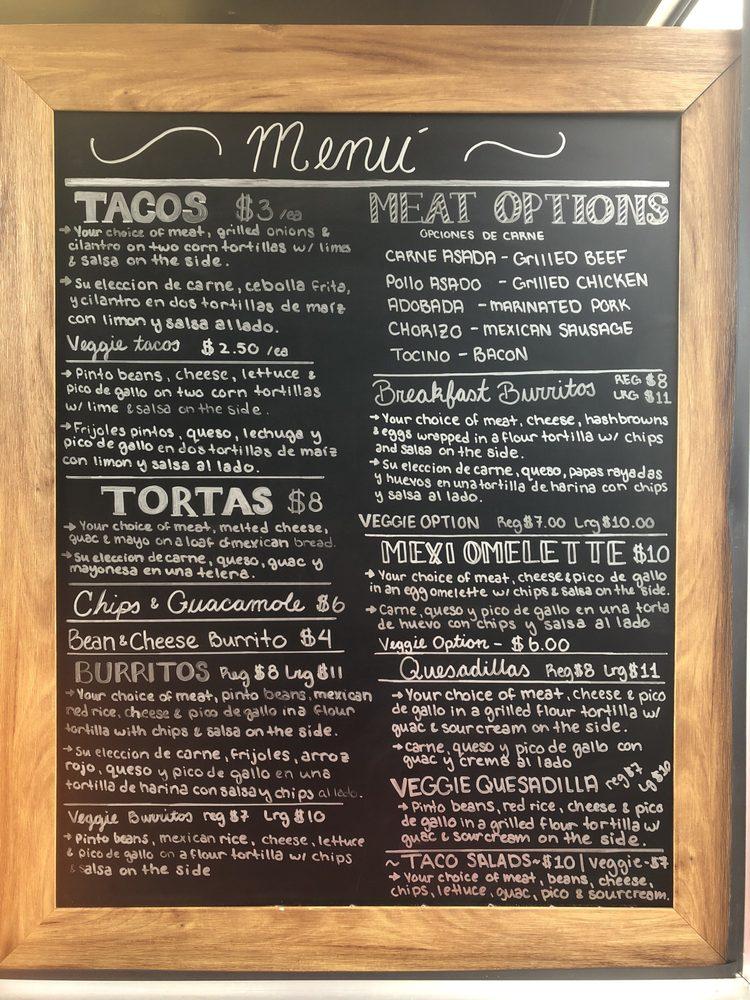 Menú
TACOS $3/ea
→Your choice of meat, grilled onions &
cilantro on two corn tortillas w/ limes
& salsa on the side.
→Su eleccion de carne, cebolla frita,
y cilantro en dos tortillas de maíz
con limon y salsa al lado.
Veggie tacos $2.50/ea
→Pinto beans, cheese, lettuce &
pico de gallo on two corn tortillas
w/ lime & salsa on the side.
→Frijoles pintos, queso, lechuga y
pico de gallo en dos tortillas de maíz
con limon y salsa al lado.
TORTAS $8
→Your choice of meat, melted cheese,
guac & mayo on a loaf of mexican bread.
→Su eleccion de carne, queso, guac y
mayonesa en una telera.
Chips & Guacamole $6
Bean & Cheese Burrito $4
BURRITOS Reg $8 Lrg $11
→Your choice of meat, pinto beans, mexican
red rice, cheese & pico de gallo in a flour
tortilla with chips & salsa on the side.
→Su eleccion de carne, frijoles, arroz
rojo, queso y pico de gallo en una
tortilla de harina con salsa y chips al lado.
Veggie Burritos reg $7 Lrg $10
→Pinto beans, mexican rice, cheese, lettuce
& pico de gallo on a flour tortilla w/ chips
& salsa on the side
MEAT OPTIONS
OPCIONES DE CARNE
CARNE ASADA - GRILLED BEEF
POLLO ASADO - GRILLED CHICKEN
ADOBADA - MARINATED PORK
CHORIZO - MEXICAN SAUSAGE
TOCINO - BACON
Breakfast Burritos REG $8
LRG $11
→Your choice of meat, cheese, hashbrowns
& eggs wrapped in a flour tortilla w/ chips
and salsa on the side.
→Su eleccion de carne, queso, papas rayadas
y huevos en una tortilla de harina con chips
y salsa al lado.
VEGGIE OPTION Reg $7.00 Lrg $10.00
MEXI OMELETTE $10
→Your choice of meat, cheese & pico de gallo
in an egg omelette w/ chips & salsa on the side.
→Carne, queso y pico de gallo en una torta
de huevo con chips y salsa al lado
Veggie Option - $6.00
Quesadillas Reg $8 Lrg $11
→Your choice of meat, cheese & pico
de gallo in a grilled flour tortilla w/
guac & sour cream on the side.
→carne, queso y pico de gallo con
guac y crema al lado
VEGGIE QUESADILLA reg $7 Lg $10
→Pinto beans, red rice, cheese & pico
de gallo in a grilled flour tortilla w/
guac & sour cream on the side.
~TACO SALADS~$10 | Veggie-$7
→Your choice of meat, beans, cheese,
chips, lettuce, guac, pico & sourcream.